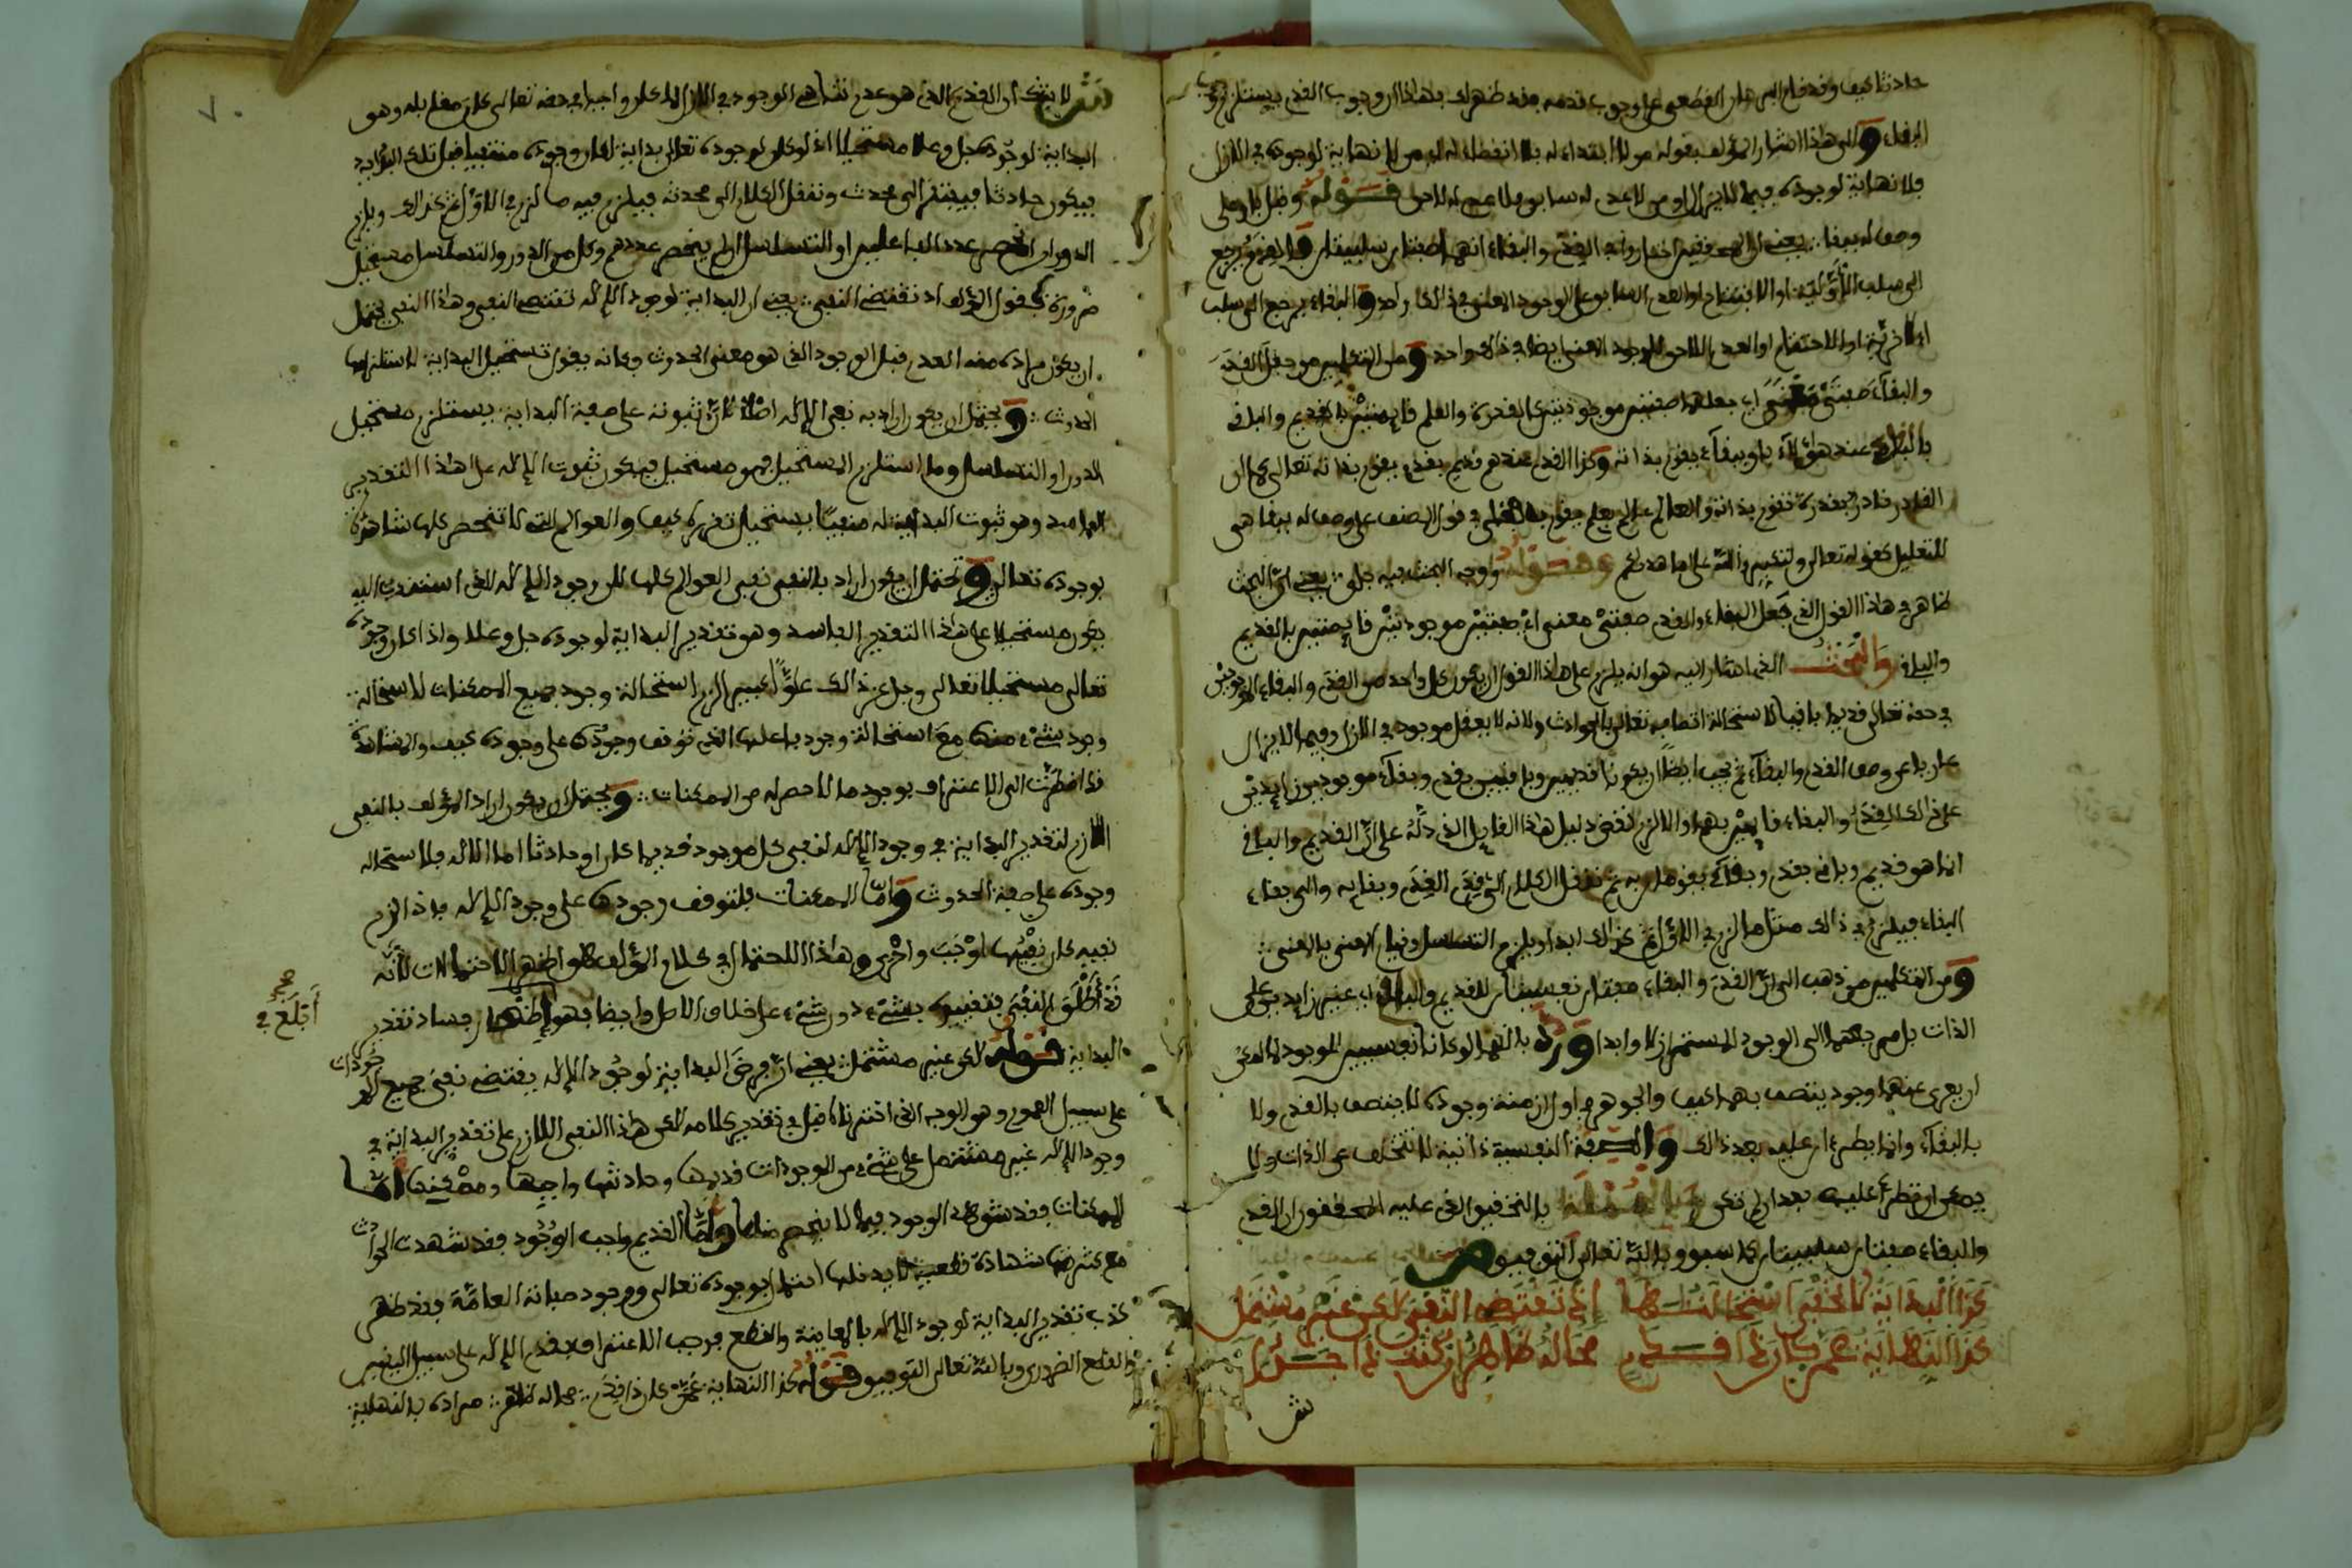 حادثا كيف وقد قام البرهان القطعي على وجوب قدمه فقد ظهر لك بهذا ان وجوب القدم يستلزم وجوب
البقاء والى هذا اشار المؤلف بقوله من لا ابتداء له فلا انقضاء له اي من لا نهاية لوجوده في الازل
فلا نهاية لوجوده فيما لا يزال او من لا عدم له سابق فلا عدم له لاحق قوله وقل باق على
وصف له بيقا يعني ان المحققين اختاروا في القدم والبقاء انهما صفتان سلبيتان فالقدم يرجع
الى سلب الاولية او الافتتاح او العدم السابق على الوجود المعنى في ذلك واحد والبقاء يرجع الى سلب
الاخرية او الاختتام او العدم اللاحق للوجود المعنى ايضا في ذلك واحد ومن المتكلمين من جعل القدم
والبقاء صفتي معنى اي جعلهما صفتين موجودتين كالقدرة والعلم قايمتين بالقديم والباقي
فالباري عند هؤلاء باق ببقاء يقوم بذاته وكذا القدم عندهم قديم بقدم يقوم بذاته تعالى كما ان
القادر قادر بقدرة تقوم بذاته والعالم عالم بعلم يقوم به فعلى في قول المصنف على وصف له بيقا هي
للتعليل كقوله تعالى ولتكبروا الله على ما هداكم وقوله واوجه البحث فيه جلى يعني ان البحث
ظاهر في هذا القول الذي جعل البقاء والقدم صفتي معنى اي صفتين موجودتين قايمتين بالقديم
والباقي والبحث الذي اشار اليه هو انه يلزم على هذا القول ان يكون كل واحد من القدم والبقاء الموجودين
في حقه تعالى قديما باقيا لاستحالة اتصافه تعالى بالحوادث ولانه لا يعقل موجود في الازل وفيما لا يزال
عار عن وصف القدم والبقاء ثم يجب ايضا ان يكونا قديمين وباقيين بقدم وبقاء موجودين زايدين
على ذلك القدم والبقاء قايمين بهما والا لزم نقض دليل هذا القايل الذي دله على ان القديم والباقي
انما هو قديم وباق بقدم وبقاء يقومان به ثم ننقل الكلام الى قدم القدم وبقايه والى بقاء
البقاء فيلزم في ذلك مثل ما لزم في الاول ثم كذلك ابدا ويلزم التسلسل وقيام المعنى بالمعنى
ومن المتكلمين من ذهب الى ان القدم والبقاء صفتان نفسيتان للقديم والباقي اي غير زايدين على
الذات بل مرجعهما الى الوجود المستمر ازلا وابدا ورد بانهما لو كانا نفسيين للموجود لما امكن
ان يعرى عنهما وجود يتصف بهما كيف والجوهر في اول ازمنة وجوده لا يتصف بالقدم ولا
بالبقاء وانما يطرءان عليه بعد ذلك والصفة النفسية ذاتية لا تتخلف عن الذات ولا
يمكن ان تطرأ عليه بعد ان لم تكن وبالجملة فالتحقيق الذي عليه المحققون ان القدم
والبقاء صفتان سلبيتان كما سبق وبالله تعالى التوفيق ص
كذا البداية لا تخفى استحالتها إذ تقتضي النفي لكن غير مشتمل
كذا النهاية عمن كان ذا قدم محاله ظاهر ان كنت ذا جدل
ش
ش لا شك ان القدم الذي هو عدم تناهي الوجود في الازل لما كان واجبا في حقه تعالى كان مقابله وهو
البداية لوجوده جل وعلا مستحيلا اذ لو كان لوجوده تعالى بداية لكان وجوده منتفيا قبل تلك البداية
فيكون حادثا فيفتقر الى محدث وننقل الكلام الى محدثه فيلزم فيه ما لزم في الاول ثم كذلك ويلزم
الدور ان انحصر عدد الفاعلين او التسلسل ان لم ينحصر عددهم وكل من الدور والتسلسل مستحيل
ضرورة فقول المؤلف اذ تقتضي النفي يعني ان البداية لوجود الاله تقتضي النفي وهذا النفي يحتمل
ان يكون مراده منه العدم قبل الوجود الذي هو معنى الحدوث وكانه يقول تستحيل البداية لاستلزامها
الحدوث ويحتمل ان يكون اراد به نفي الاله اصلا لان ثبوته على صفة البداية يستلزم مستحيل
الدور او التسلسل وما استلزم المستحيل فهو مستحيل فيكون ثبوت الاله على هذا التقدير
الفاسد وهو ثبوت البداية له منفيا يستحيل تقرره كيف والعوالم التي لا تنحصر كلها شاهدة
بوجوده تعالى ويحتمل ان يكون اراد بالنفي نفي العوالم كلها لان وجود الاله الذي استندت اليه
يكون مستحيلا على هذا التقدير الفاسد وهو تقدير البداية لوجوده جل وعلا واذا كان وجوده
تعالى مستحيلا تعالى وجل عن ذلك علوا كبيرا لزم استحالة وجود جميع الممكنات لاستحالة
وجود شيء منها مع استحالة وجود فاعلها الذي توقف وجودها على وجوده كيف والمشاهدة
قد اضطرت الى الاعتراف بوجود ما لا حصر له من الممكنات ويحتمل ان يكون اراد المؤلف بالنفي
اللازم لتقدير البداية في وجود الاله نفي كل موجود قديما كان او حادثا اما الاله فلاستحالة
وجوده على صفة الحدوث واما الممكنات فلتوقف وجودها على وجود الاله فاذا لزم
نفيه كان نفيها اوجب واحرى وهذا الاحتمال في كلام المؤلف هو اظهر الاحتمالات لانه
قد أطلق النفي فتقييده بشيء دون شيء على خلاف الاصل وايضا فهو إظهار فساد تقدير
البداية قوله لكن غير مشتمل يعني ان فرض البداية لوجود الاله يقتضي نفي جميع الموجودات
على سبيل العموم وهو الوجه الذي اخترناه قبل في تقدير كلامه لكن هذا النفي اللازم على تقدير البداية في
وجود الاله غير مشتمل على شيء من الوجودات قديمها وحادثها واجبها وممكنها أما
الممكنات فقد شوهد الوجود فيما لا ينحصر منها وأما القديم واجب الوجود فقد شهدت الحوادث
مع كثرتها شهادة قطعية بوجوده تعالى ووجود صفاته العامة فقد ظهر
كذب تقدير البداية لوجود الاله بالمعاينة والقطع فوجب الاعتراف بقدم الاله على سبيل اليقين
والقطع الضروري وبالله تعالى التوفيق قوله كذا النهاية عمن كان ذا قدم محاله ظاهر مراده بالنهاية